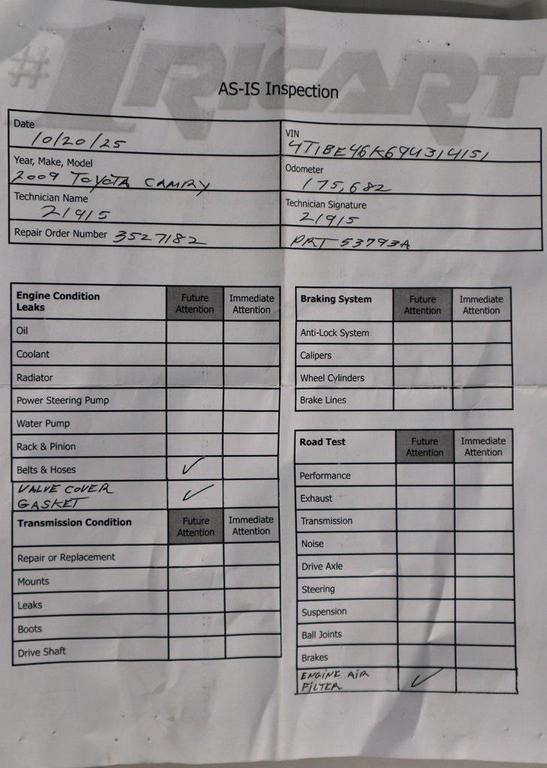 #1 RICART
AS-IS Inspection
Date
10/20/25
VIN
4T1BE46K694314151
Year, Make, Model
2009 TOYOTA CAMRY
Odometer
175,682
Technician Name
21915
Technician Signature
21915
Repair Order Number 3527182
PRT 53793A
Engine Condition
Leaks
Future
Attention
Immediate
Attention
Oil
Coolant
Radiator
Power Steering Pump
Water Pump
Rack & Pinion
Belts & Hoses ✓
VALVE COVER
GASKET ✓
Transmission Condition
Future
Attention
Immediate
Attention
Repair or Replacement
Mounts
Leaks
Boots
Drive Shaft
Braking System
Future
Attention
Immediate
Attention
Anti-Lock System
Calipers
Wheel Cylinders
Brake Lines
Road Test
Future
Attention
Immediate
Attention
Performance
Exhaust
Transmission
Noise
Drive Axle
Steering
Suspension
Ball Joints
Brakes
ENGINE AIR
FILTER ✓